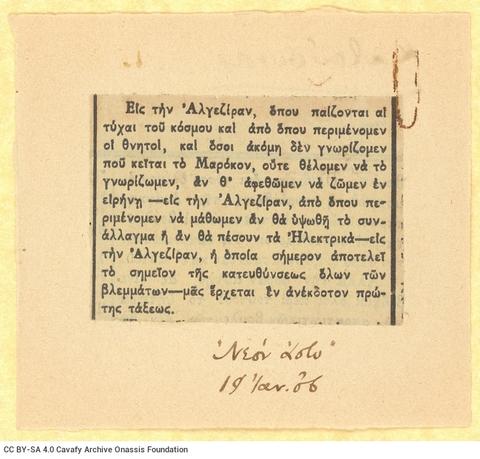 Εἰς τὴν Ἀλγεζίραν, ὅπου παίζονται αἱ
τύχαι τοῦ κόσμου καὶ ἀπὸ ὅπου περιμένομεν
οἱ θνητοί, καὶ ὅσοι ἀκόμη δὲν γνωρίζομεν
ποῦ κεῖται τὸ Μαρόκον, οὔτε θέλομεν νὰ τὸ
γνωρίζωμεν, ἂν θ' ἀφεθῶμεν νὰ ζῶμεν ἐν
εἰρήνῃ —εἰς τὴν Ἀλγεζίραν, ἀπὸ ὅπου πε-
ριμένομεν νὰ μάθωμεν ἂν θὰ ὑψωθῇ τὸ συν-
άλλαγμα ἢ ἂν θὰ πέσουν τὰ Ἠλεκτρικὰ—εἰς
τὴν Ἀλγεζίραν, ἡ ὁποία σήμερον ἀποτελεῖ
τὸ σημεῖον τῆς κατευθύνσεως ὅλων τῶν
βλεμμάτων—μᾶς ἔρχεται ἓν ἀνέκδοτον πρώ-
της τάξεως.
"Νέον Ἄστυ"
19 Ἰαν. 06
CC BY-SA 4.0 Cavafy Archive Onassis Foundation